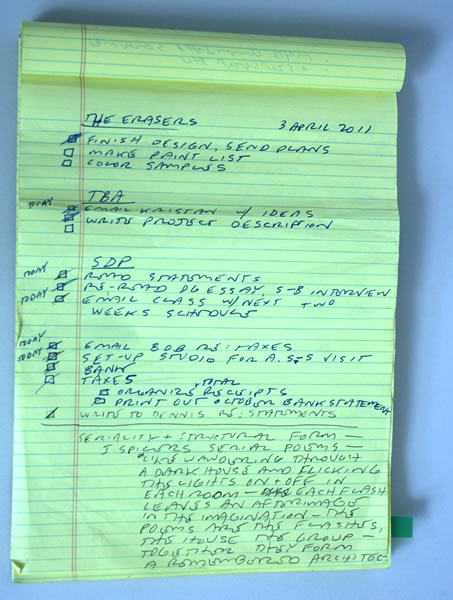 THE ERASERS 3 APRIL 2011
FINISH DESIGN, SEND PLANS
MAKE PAINT LIST
COLOR SAMPLES
TBA
TODAY EMAIL KRISTAN W/ IDEAS
WRITE PROJECT DESCRIPTION
SDP
TODAY READ STATEMENTS
TODAY RE-READ DG ESSAY, S-B INTERVIEW
EMAIL CLASS W/ NEXT TWO
WEEKS SCHEDULE
TODAY EMAIL BOB RE: TAXES
TODAY SET-UP STUDIO FOR A. S-S VISIT
BANK
TAXES
ORGANIZE RECEIPTS
PRINT OUT OCTOBER BANK STATEMENT
WRITE TO DENNIS RE: STATEMENTS
SERIALITY + STRUCTURAL FORM —
J. SPICERS SERIAL POEMS —
LIKE WANDERING THROUGH
A DARK HOUSE AND FLICKING
THE LIGHTS ON + OFF IN
EACH ROOM — EACH FLASH
LEAVES AN AFTERIMAGE
IN THE IMAGINATION — THE
POEMS ARE THE FLASHES,
THE HOUSE THE GROUP —
TOGETHER THEY FORM
A REMEMBERED ARCHITEC-